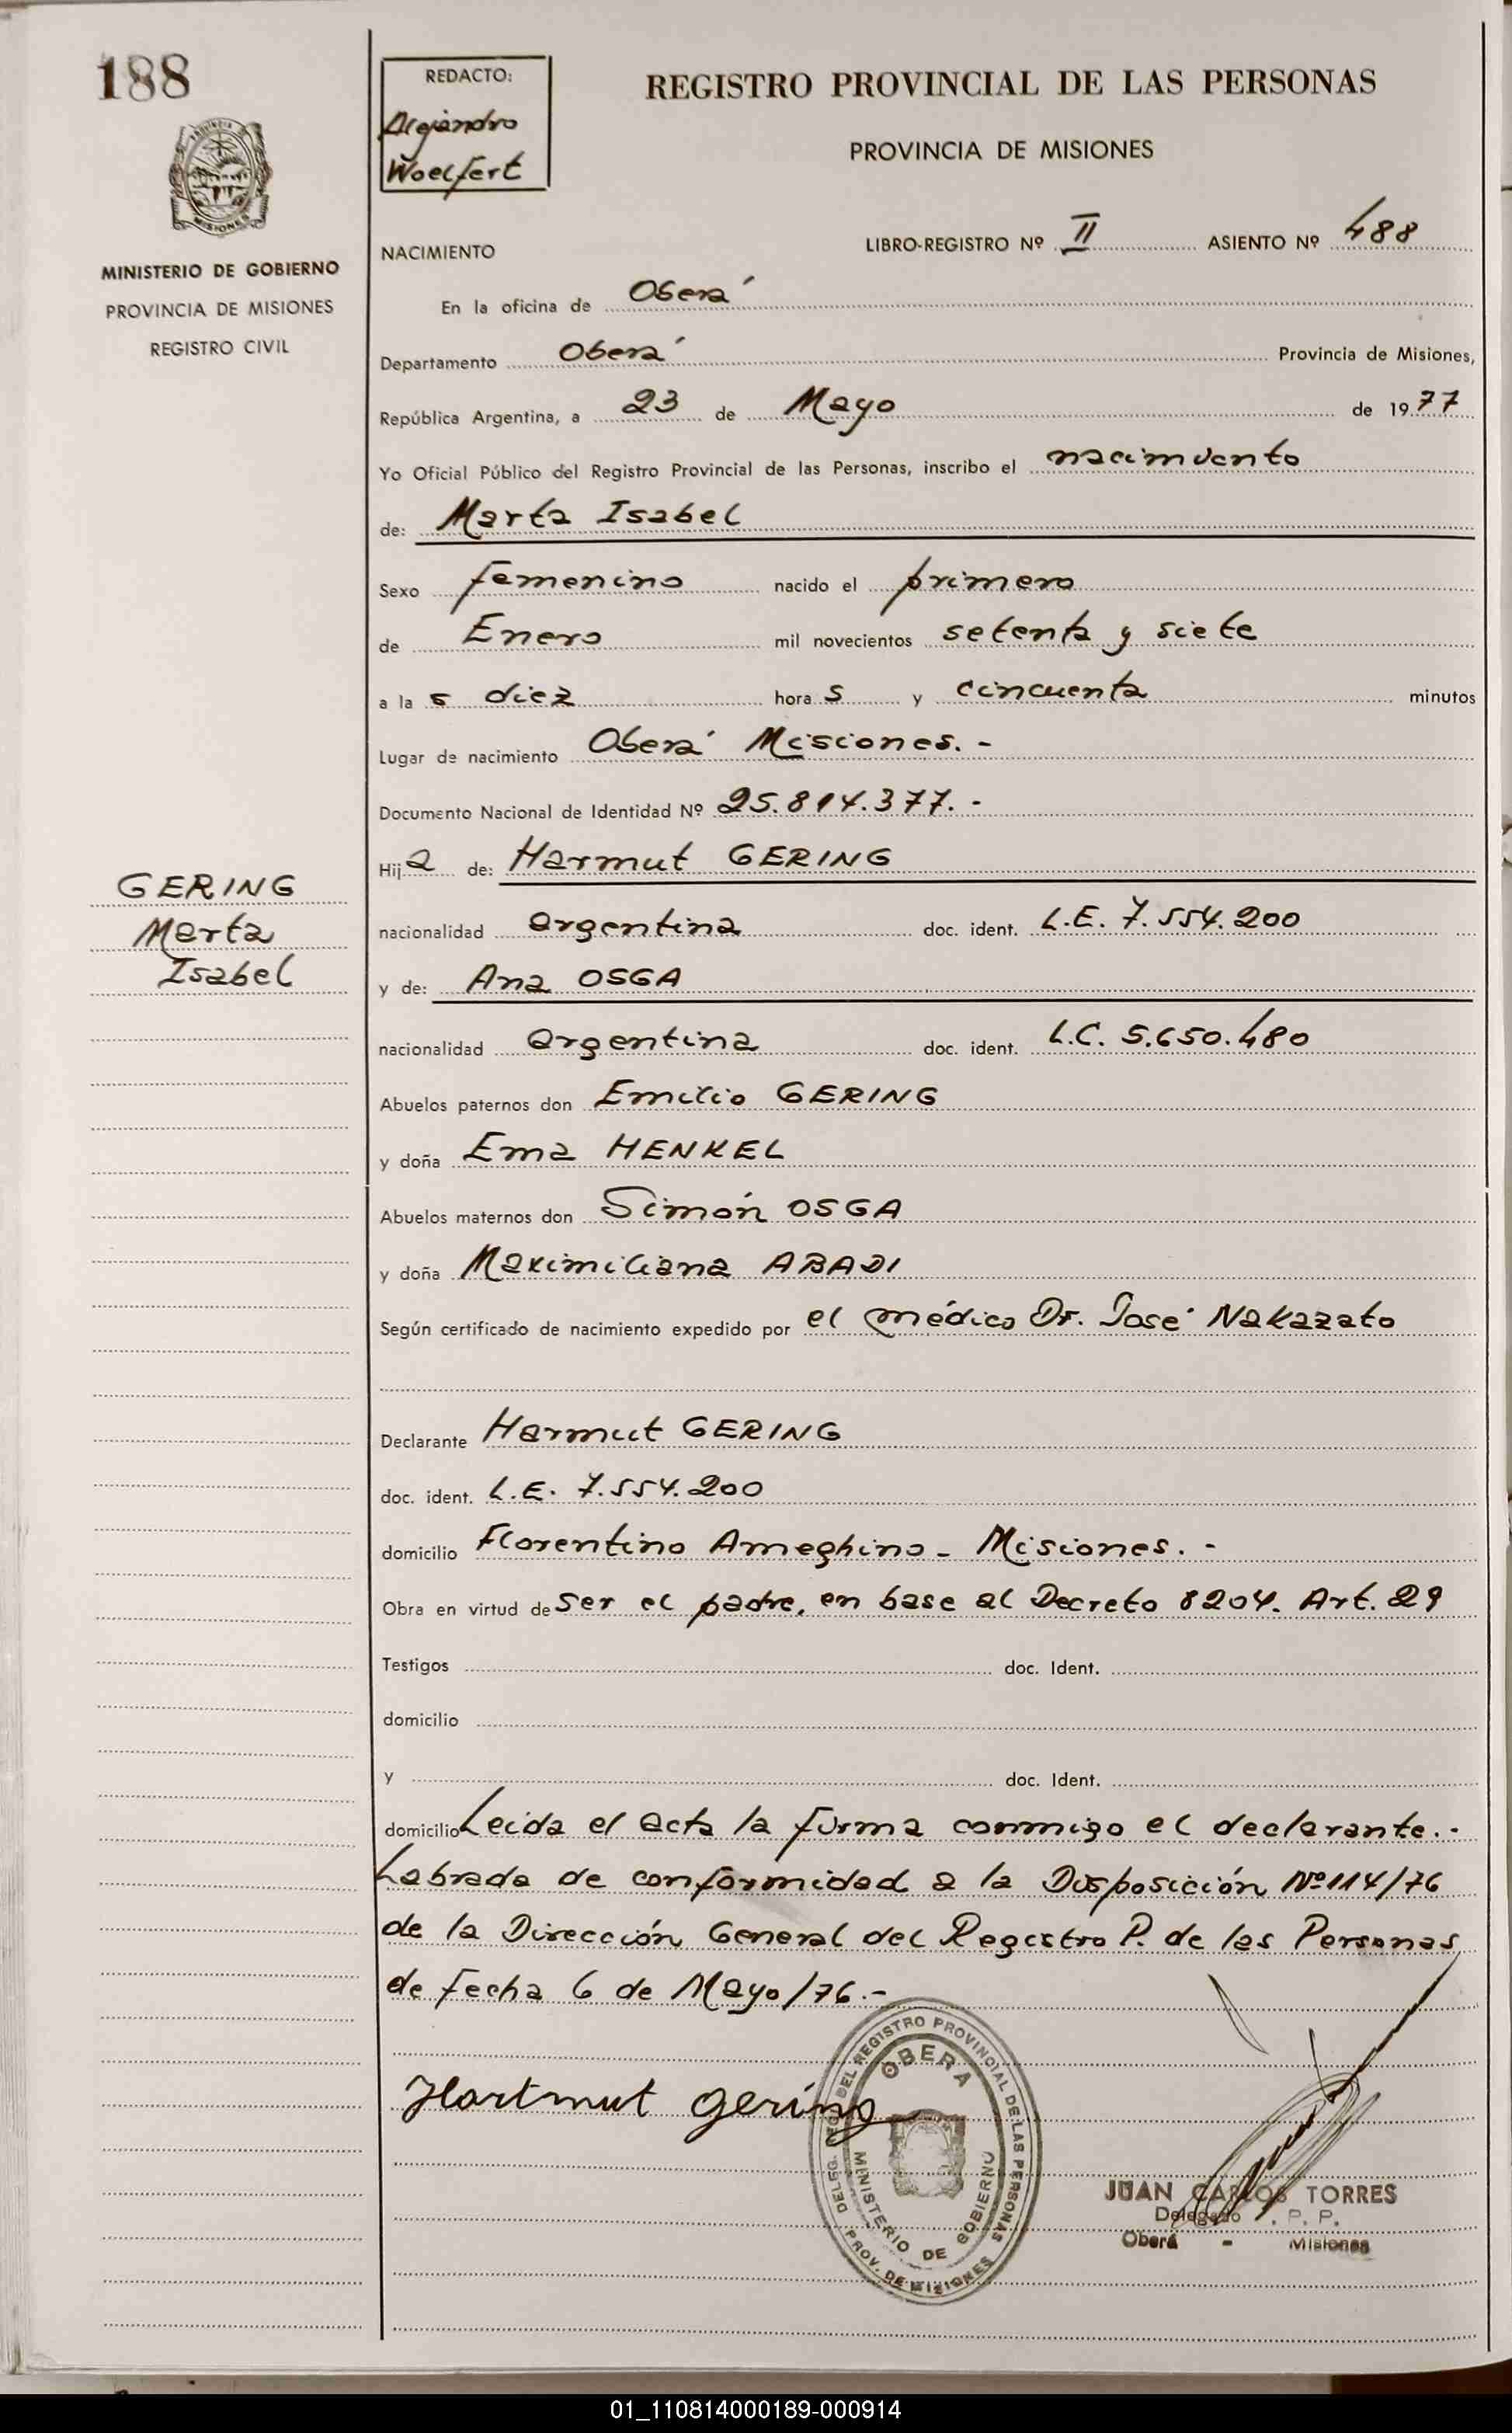 188
REDACTO:
Alejandro
Woelfert
REGISTRO PROVINCIAL DE LAS PERSONAS
PROVINCIA DE MISIONES
MISIONES
MINISTERIO DE GOBIERNO
PROVINCIA DE MISIONES
REGISTRO CIVIL
NACIMIENTO
LIBRO-REGISTRO Nº II ASIENTO Nº 488
En la oficina de Oberá
Departamento Oberá Provincia de Misiones,
República Argentina, a 23 de Mayo de 1977
Yo Oficial Público del Registro Provincial de las Personas, inscribo el nacimiento
de: Marta Isabel
Sexo femenino nacido el primero
de Enero mil novecientos setenta y siete
a la s diez hora s y cincuenta minutos
Lugar de nacimiento Oberá Misiones. -
Documento Nacional de Identidad Nº 25.814.377. -
Hij a de: Harmut GERING
GERING
Marta
Isabel
nacionalidad argentina doc. ident. L.E. 7.554.200
y de: Ana OSGA
nacionalidad argentina doc. ident. L.C. 5.650.480
Abuelos paternos don Emilio GERING
y doña Ema HENKEL
Abuelos maternos don Simón OSGA
y doña Maximiliana ABADI
Según certificado de nacimiento expedido por el médico Dr. José Nakazato
Declarante Harmut GERING
doc. ident. L.E. 7.554.200
domicilio Florentino Ameghino - Misiones. -
Obra en virtud de ser el padre, en base al Decreto 8204. Art. 29
Testigos doc. Ident.
domicilio
y doc. Ident.
domicilio Leida el acta la firma conmigo el declarante. -
Labrada de conformidad a la Disposición Nº 114/76
de la Dirección General del Registro P. de las Personas
de fecha 6 de Mayo/76. -
Hartmut Gering
DELEG. DEL REGISTRO PROVINCIAL DE LAS PERSONAS
OBERA
MINISTERIO DE GOBIERNO
PROV. DE MISIONES
JUAN CARLOS TORRES
Delegado . P. P.
Oberá - Misiones
01_110814000189-000914